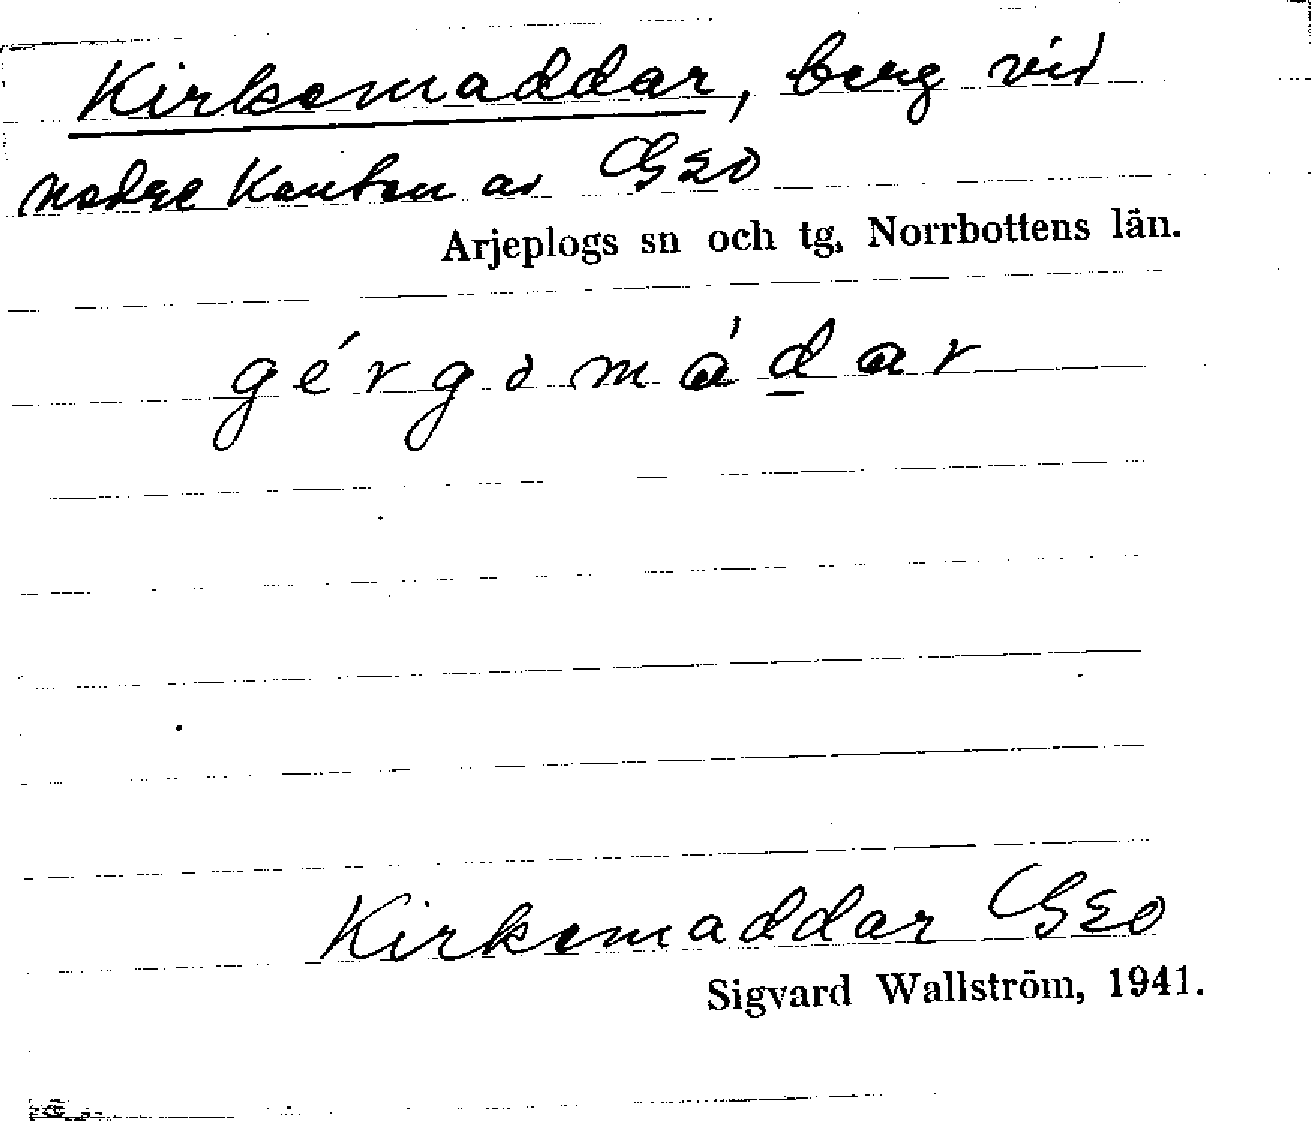 Kirkemaddar, berg vid
nedre Kanten av GEO
Arjeplogs sn och tg, Norrbottens län.
gérgəmáḏar
Kirkemaddar GEO
Sigvard Wallström, 1941.